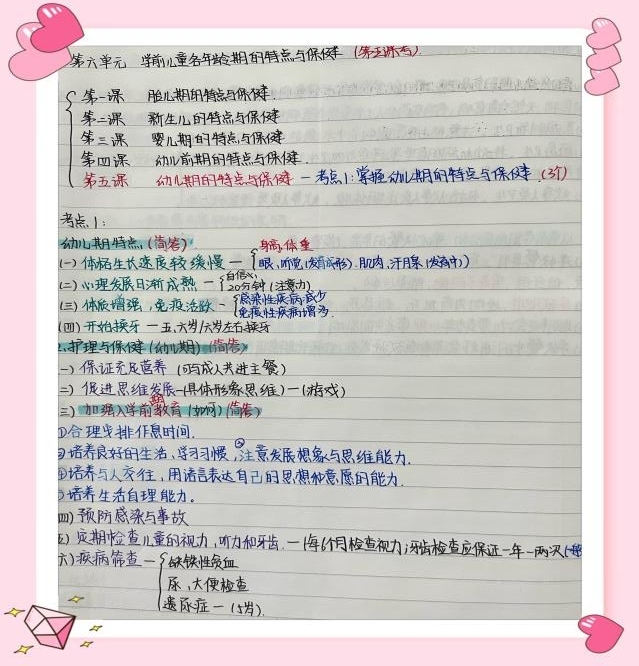 第六单元 学前儿童各年龄期的特点与保健 (第五课考)
第一课 胎儿期的特点与保健.
第二课 新生儿的特点与保健
第三课 婴儿期的特点与保健
第四课 幼儿前期的特点与保健.
第五课 幼儿期的特点与保健 - 考点1:掌握幼儿期的特点与保健.(3个)
考点1:
幼儿期特点.(简答) 身高,体重
(一) 体格生长速度较缓慢 - 眼,听觉(发育成形).肌肉,汗腺(发育中)
(二) 心理发展日渐成熟 - 自信心 20分钟(注意力)
(三) 体质增强,免疫活跃 - 感染性疾病减少
免疫性疾病增多.
(四) 开始换牙 - 五.六岁/六岁左右换牙
2.护理与保健(幼儿期)(简答)
一) 保证充足营养 (可与成人共进主餐)
二) 促进思维发展-(具体形象思维)-(游戏)
三) 加强入学前期教育(如何)(简答)
①合理安排作息时间.
②培养良好的生活,学习习惯,注意发展想象与思维能力.
培养与人交往,用语言表达自己的思想和意愿的能力.
培养生活自理能力。
四) 预防感染与事故
五) 定期检查儿童的视力,听力和牙齿.-1年6个月检查视力;牙齿检查应保证一年一两次
六) 疾病筛查 - 缺铁性贫血
尿,大便检查
遗尿症 - (5岁).